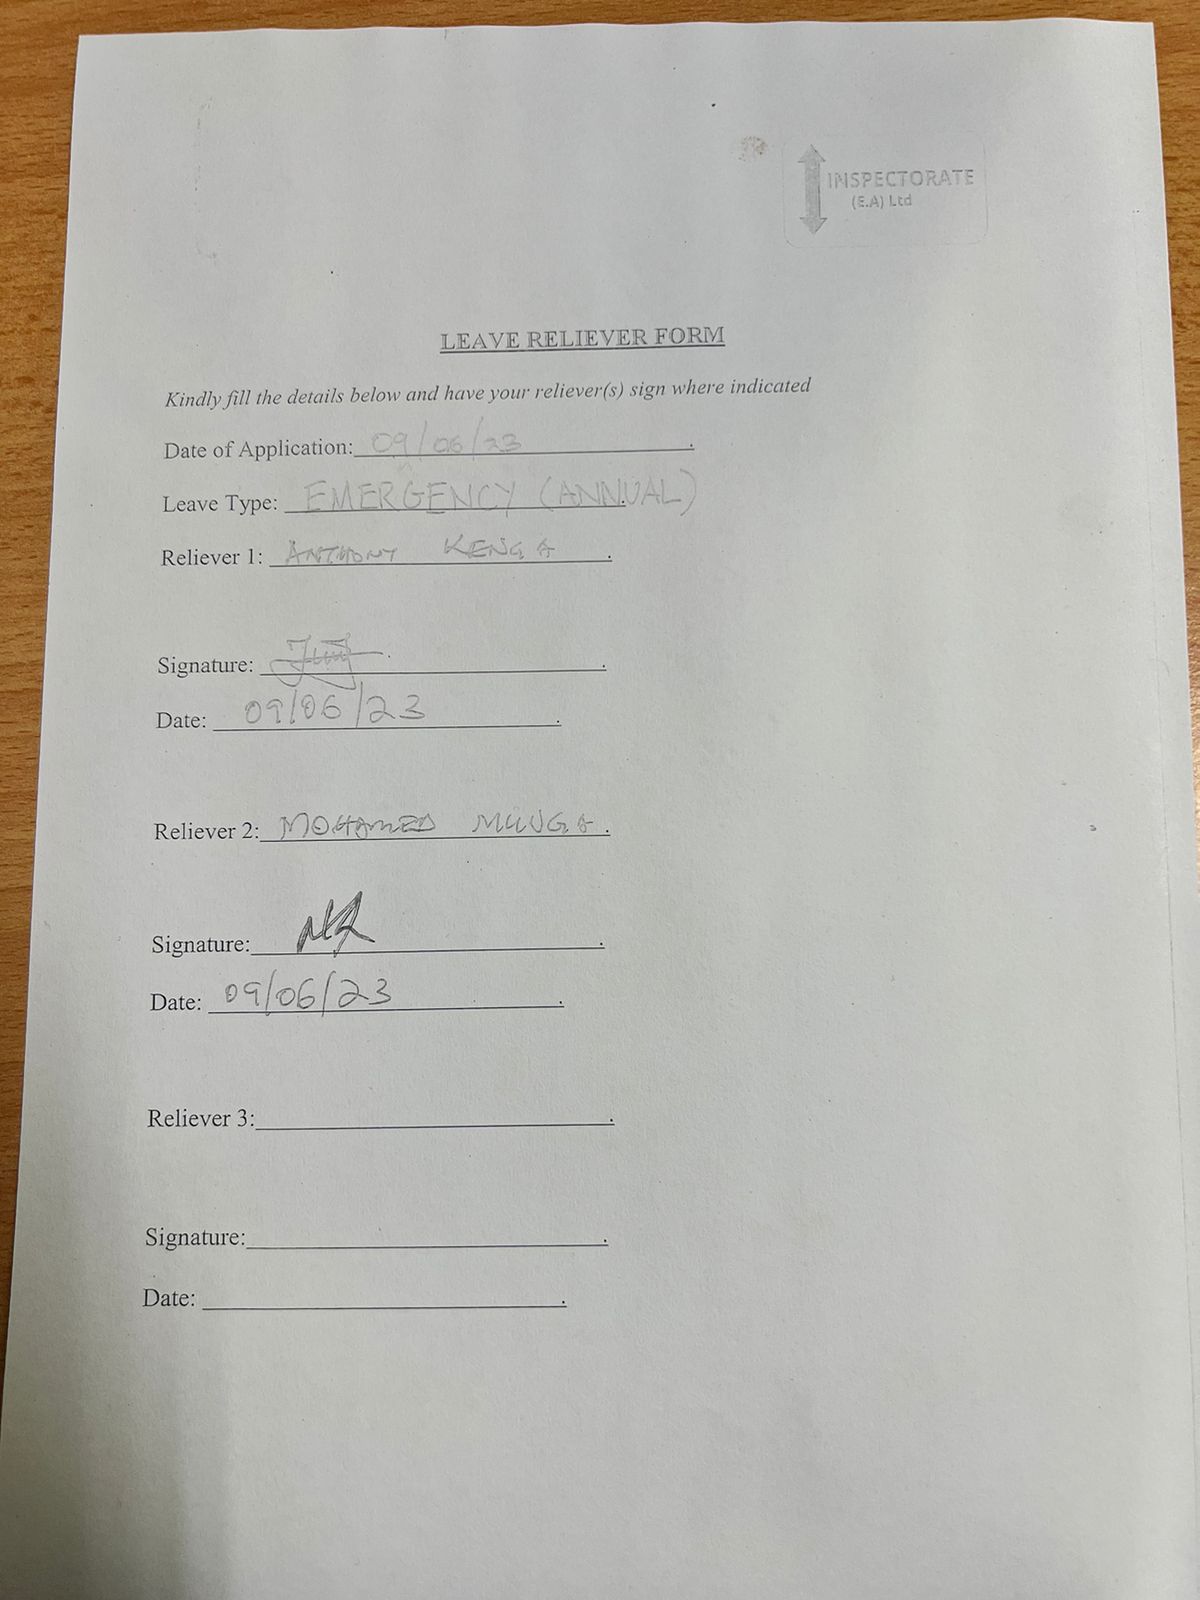 INSPECTORATE
(E.A) Ltd
LEAVE RELIEVER FORM
Kindly fill the details below and have your reliever(s) sign where indicated
Date of Application: 09/06/23
Leave Type: EMERGENCY (ANNUAL)
Reliever 1: ANTHONY KENGA
Signature:
Date: 09/06/23
Reliever 2: MOHAMED MUNGA
Signature:
Date: 09/06/23
Reliever 3:
Signature:
Date: